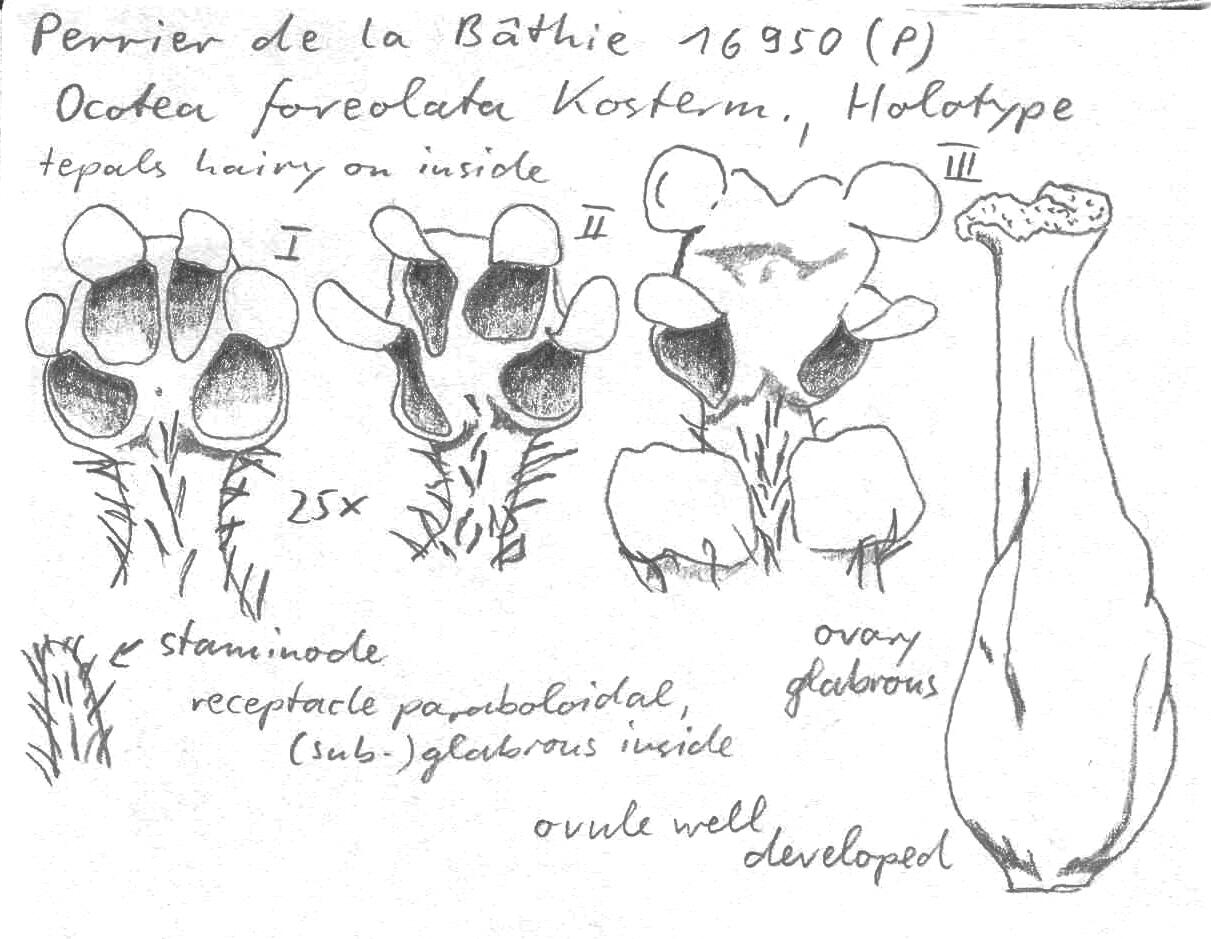 Perrier de la Bâthie 16950 (P)
Ocotea foveolata Kosterm., Holotype
tepals hairy on inside
I
II
III
25x
staminode
receptacle paraboloidal,
(sub-)glabrous inside
ovary
glabrous
ovule well
developed